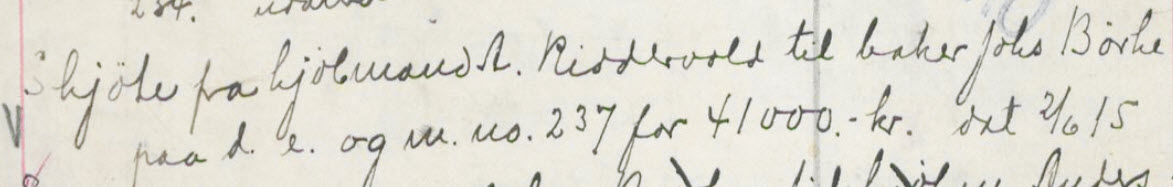 234.
Skjöte fra kjöbmand A. Riddervold til baker Johs Börke
paa d. e. og m. no. 237 for 41000.- kr. dat 2/6 15